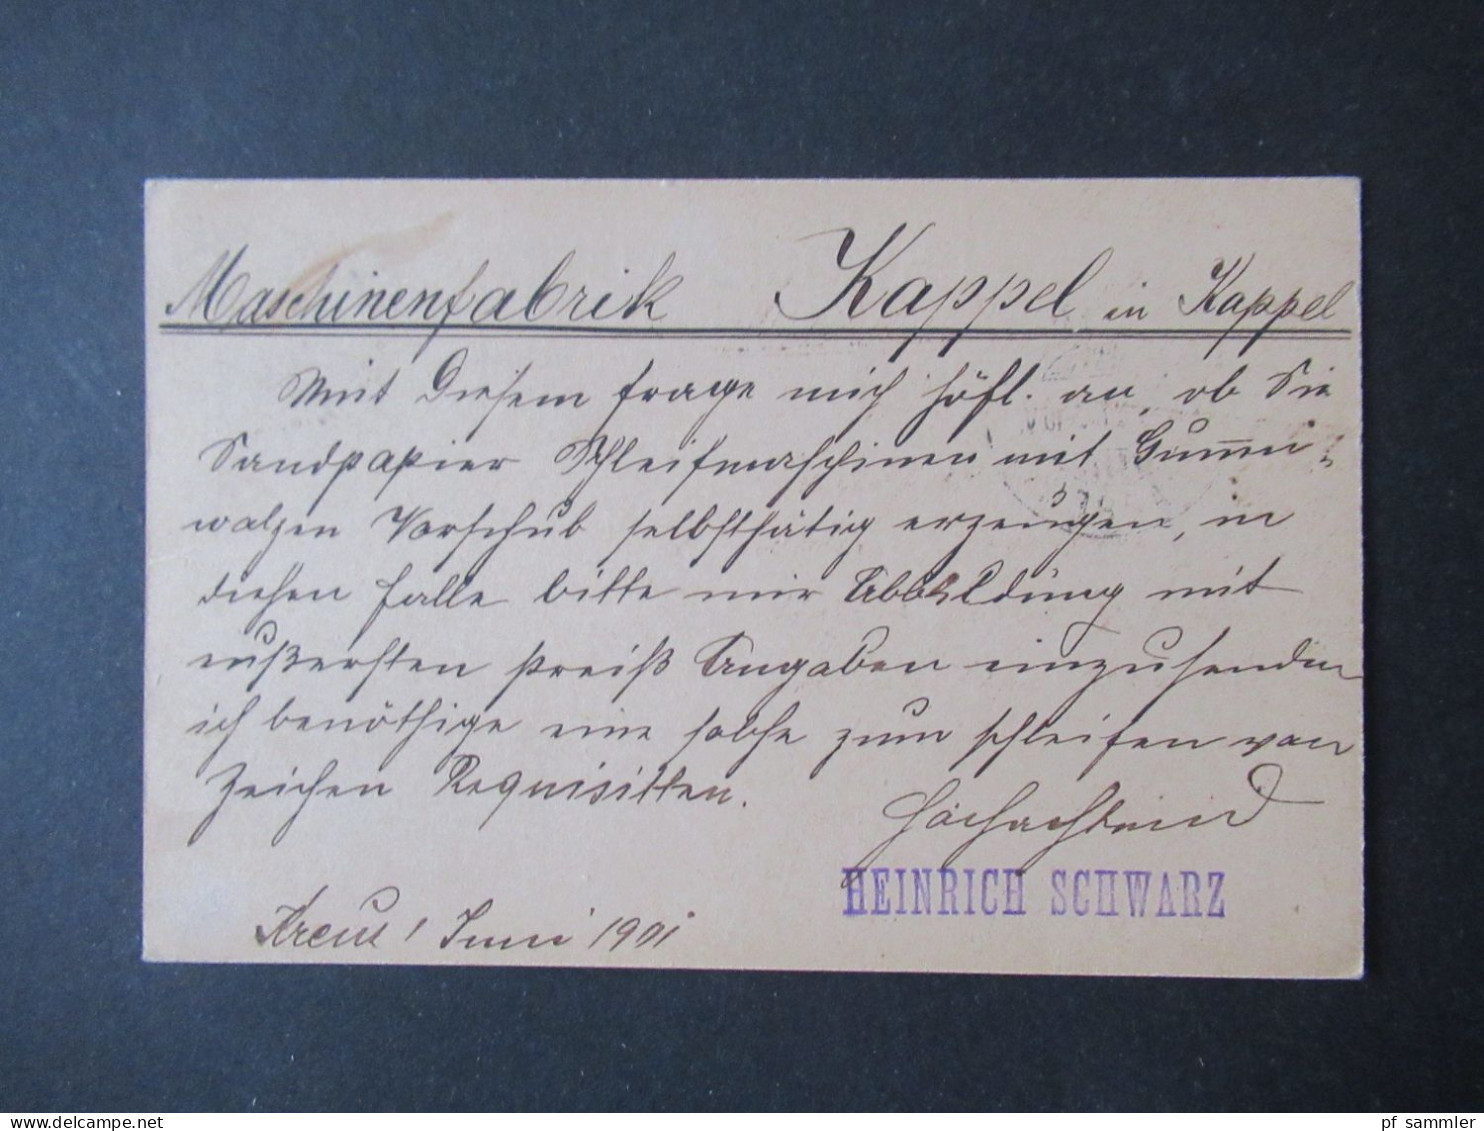 Maschinenfabrik Kappel in Kappel
Mit Diesem frage mich höfl. an, ob Sie
Sandpapier Schleifmaschinen mit Gummi-
walzen Vorschub selbstthätig erzeugen, in
diesen Falle bitte mir Abbildung mit
eußersten Preiß Angaben einzusenden
ich benöthige eine solche zum schleifen von
Zeichen Requisitten.
Hochachtend
HEINRICH SCHWARZ
1 Juni 1901
www.delcampe.net
pf_sammler